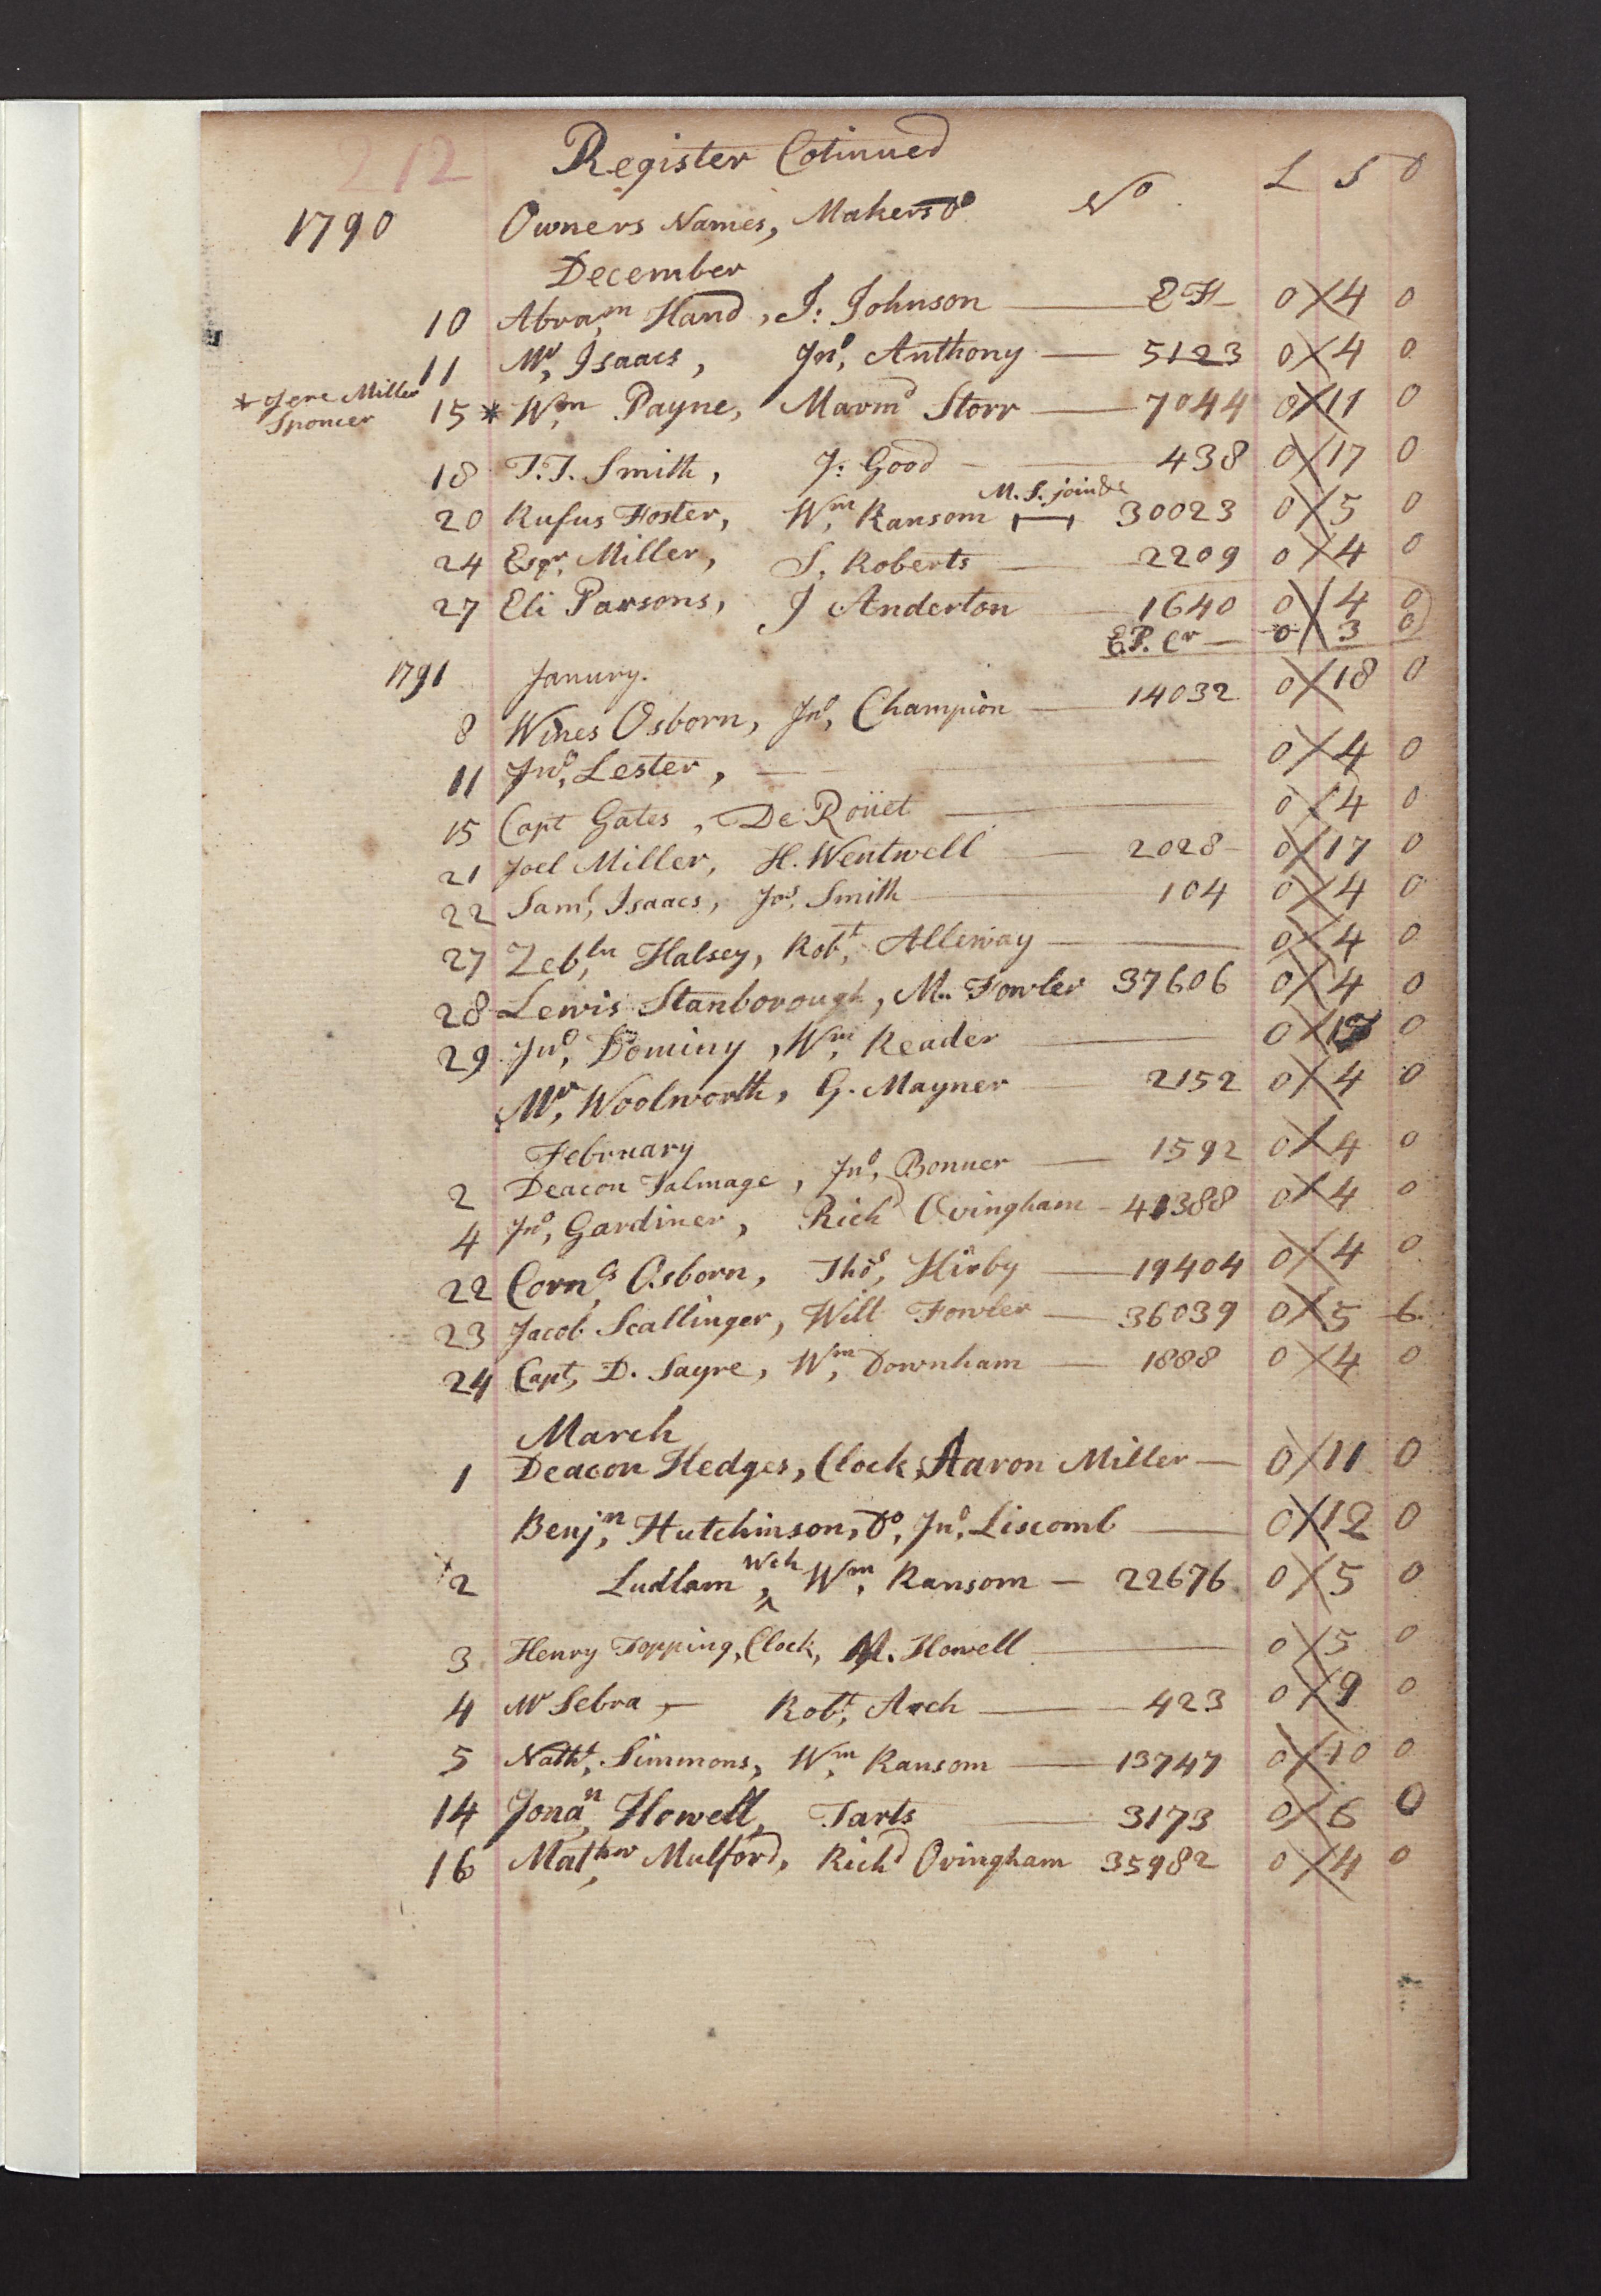 212 Register Cotinued
L S D
1790 Owners Names, Makers Do No
December
10 Abram Hand, J: Johnson — E H 0 4 0
11 Mr, Isaacs, Jno, Anthony — 5123 0 4 0
* Jere Miller
Sponcer
15 * Wm Payne, Marmd Storr — 7044 0 11 0
18 T.T. Smith, J: Good — 438 0 17 0
M. S. join
20 Rufus Foster, Wm, Ransom 30023 0 5 0
24 Esqr, Miller, S. Roberts — 2209 0 4 0
27 Eli Parsons, J Anderton — 1640 0 4 0
E.P. Cr — 0 3 0
1791 Janury.
8 Wines Osborn, Jno, Champion — 14032 0 18 0
11 Jno, Lester, — 0 4 0
15 Capt Gates, De Roüet — 0 4 0
21 Joel Miller, H. Wentwell — 2028 0 17 0
22 Saml, Isaacs, Jos, Smith — 104 0 4 0
27 Zebln, Halsey, Robt, Alleway — 0 4 0
28 Lewis Stanborough, M. Fowler 37606 0 4 0
29 Jno, Dominy, Wm, Reader — 0 0
Mr, Woolworth, G. Mayner — 2152 0 4 0
February
2 Deacon Talmage, Jno, Bonner — 1592 0 4 0
4 Jno, Gardiner, Richd Ovingham - 41388 0 4 0
22 Corns, Osborn, Thos, Kirby — 19404 0 4 0
23 Jacob Scallinger, Will Fowler — 36039 0 5 6
24 Capt, D. Sayre, Wm, Downham — 1888 0 4 0
March
1 Deacon Hedges, Clock, Aaron Miller — 0 11 0
Benjn, Hutchinson, Do, Jno, Liscomb — 0 12 0
2 Ludlam Wch, Wm, Ransom — 22676 0 5 0
3 Henry Topping, Clock, M. Howell — 0 5 0
4 Mr Sebra, — Robt, Arch — 423 0 9 0
5 Natht, Simmons, Wm, Ransom — 13747 0 10 0
14 Jonan, Howell, Tarts — 3173 0 6 0
16 Mathw, Mulford, Richd Ovingham 35982 0 4 0